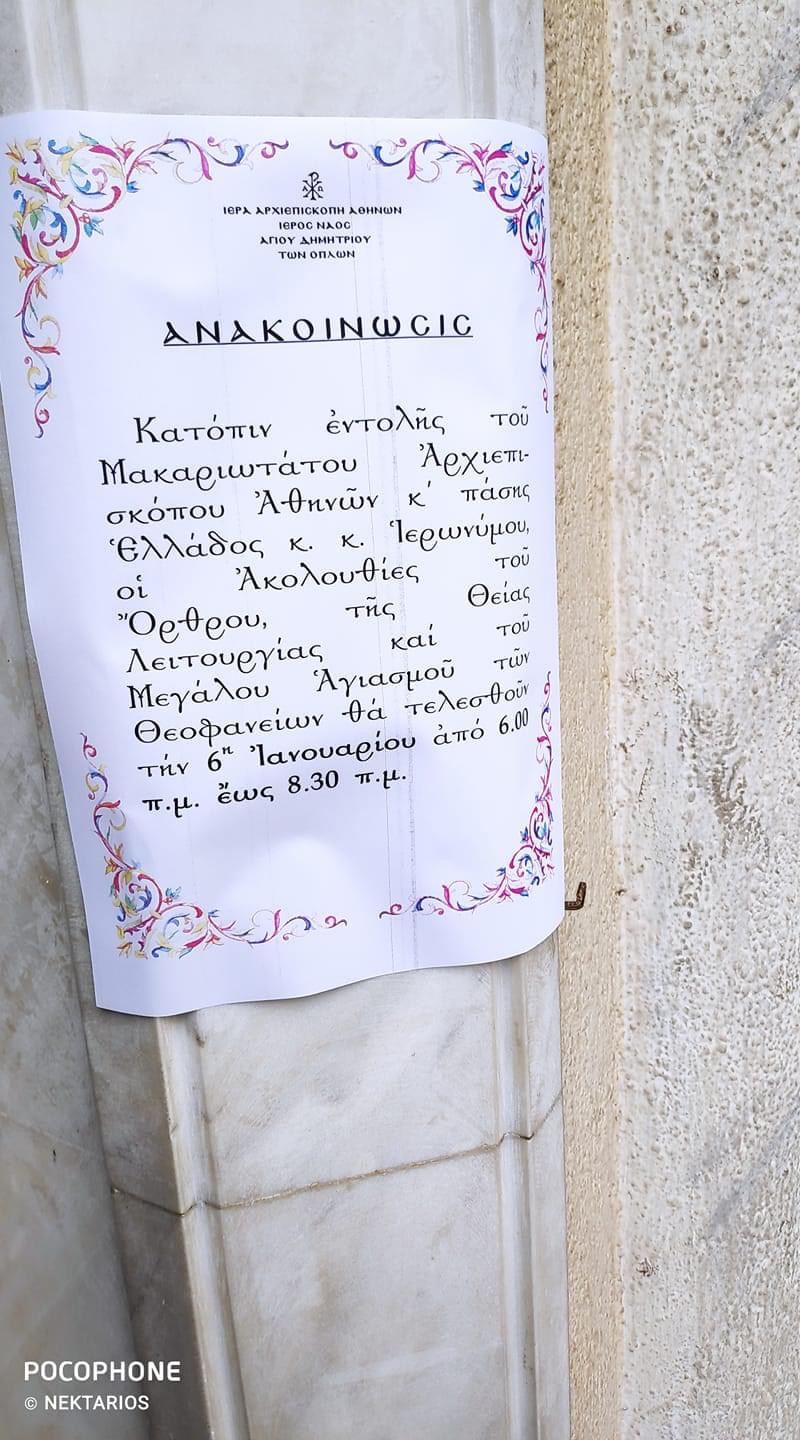 ΙΕΡΑ ΑΡΧΙΕΠΙΣΚΟΠΗ ΑΘΗΝΩΝ
ΙΕΡΟΣ ΝΑΟΣ
ΑΓΙΟΥ ΔΗΜΗΤΡΙΟΥ
ΤΩΝ ΟΠΛΩΝ
ΑΝΑΚΟΙΝΩCΙC
Κατόπιν ἐντολῆς τοῦ
Μακαριωτάτου Ἀρχιεπι-
σκόπου Ἀθηνῶν κ΄ πάσης
Ἑλλάδος κ. κ. Ἱερωνύμου,
οἱ Ἀκολουθίες τοῦ
Ὄρθρου, τῆς Θείας
Λειτουργίας καί τοῦ
Μεγάλου Ἁγιασμοῦ τῶν
Θεοφανείων θά τελεσθοῦν
τήν 6η Ἰανουαρίου ἀπό 6.00
π.μ. ἕως 8.30 π.μ.
POCOPHONE
© NEKTARIOS